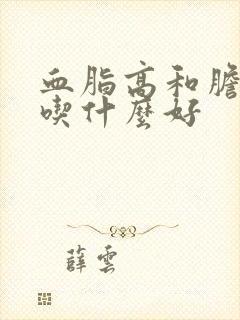 血脂高和膽
喫什麼好
薛雲